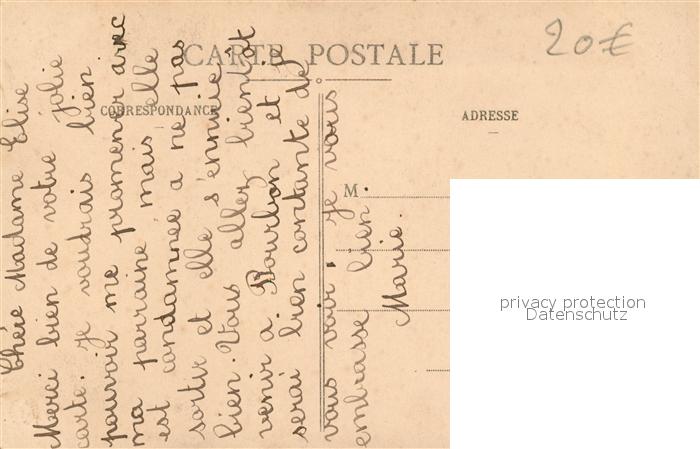 CARTE POSTALE
20€
CORRESPONDANCE
ADRESSE
M
Chère Madame Elise
Merci bien de votre jolie
carte. Je voudrais bien
pouvoir me promener avec
ma parraine mais elle
est condamnée a ne pas
sortir et elle s'ennuie
bien. Vous allez bientôt
venir a Bourbon et je
serai bien contante de
vous voir. Je vous
embrasse bien
Marie.
privacy protection
Datenschutz